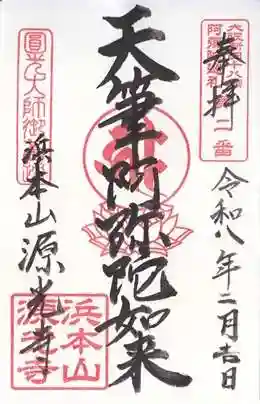 奉拝
令和八年二月吉日
天筆阿弥陀如来
浜本山源光寺
圓光大師御遺跡
大阪新四十八願
阿弥陀巡礼
第二番
浜本山
源光寺